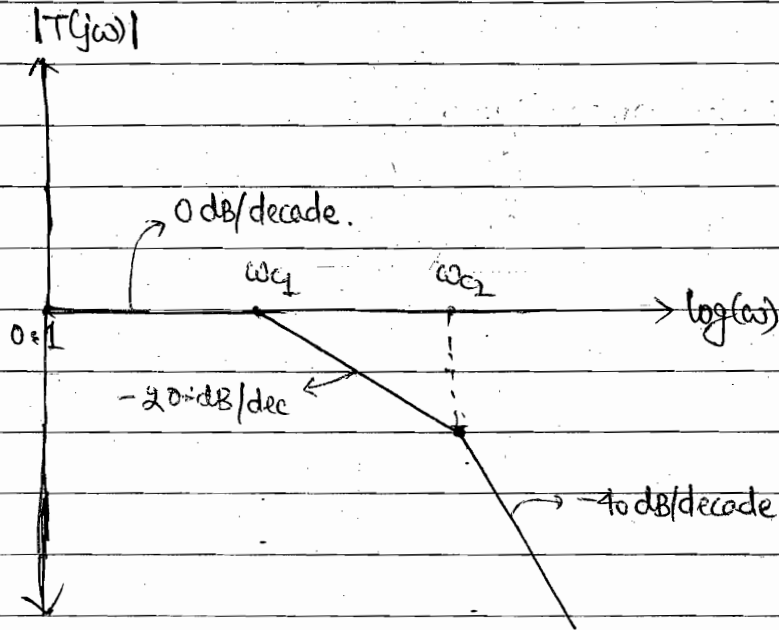 |T(jω)|
0 dB/decade.
ωc1
ωc2
log(ω)
0.1
-20 dB/dec
-40 dB/decade